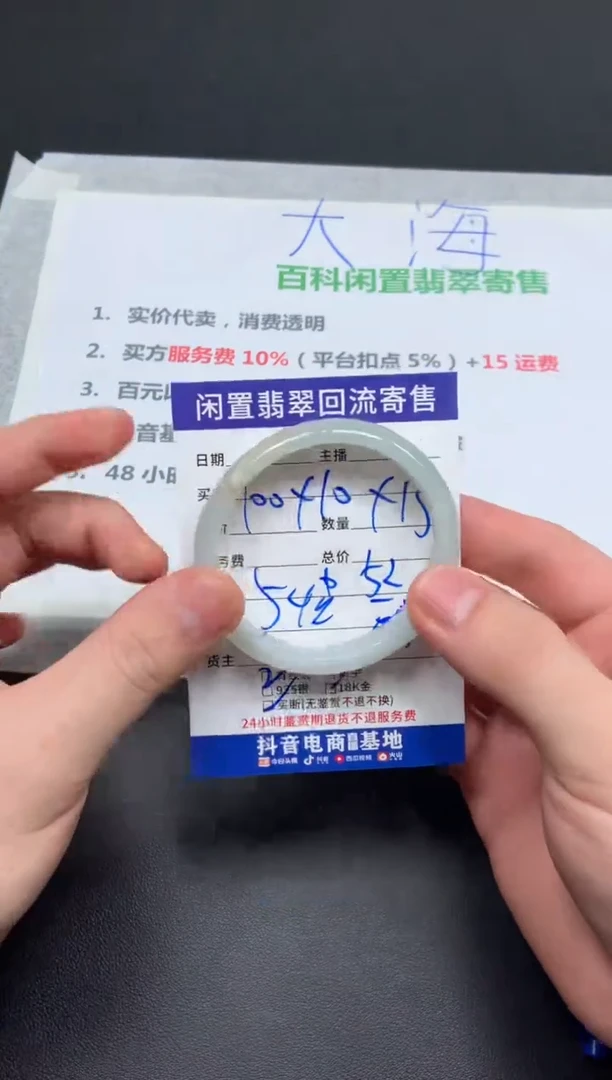 大海
百科闲置翡翠寄售
1. 实价代卖，消费透明
2. 买方服务费10%（平台扣点5%）+15运费
3. 百元以
音基
48小时
闲置翡翠回流寄售
日期 主播
买
100×10×15
数量
费 总价
54 52
货主
925银 18K金
买断(无鉴赏不退不换)
24小时鉴赏期退货不退服务费
抖音电商基地
今日头条 抖音 西瓜视频 火山